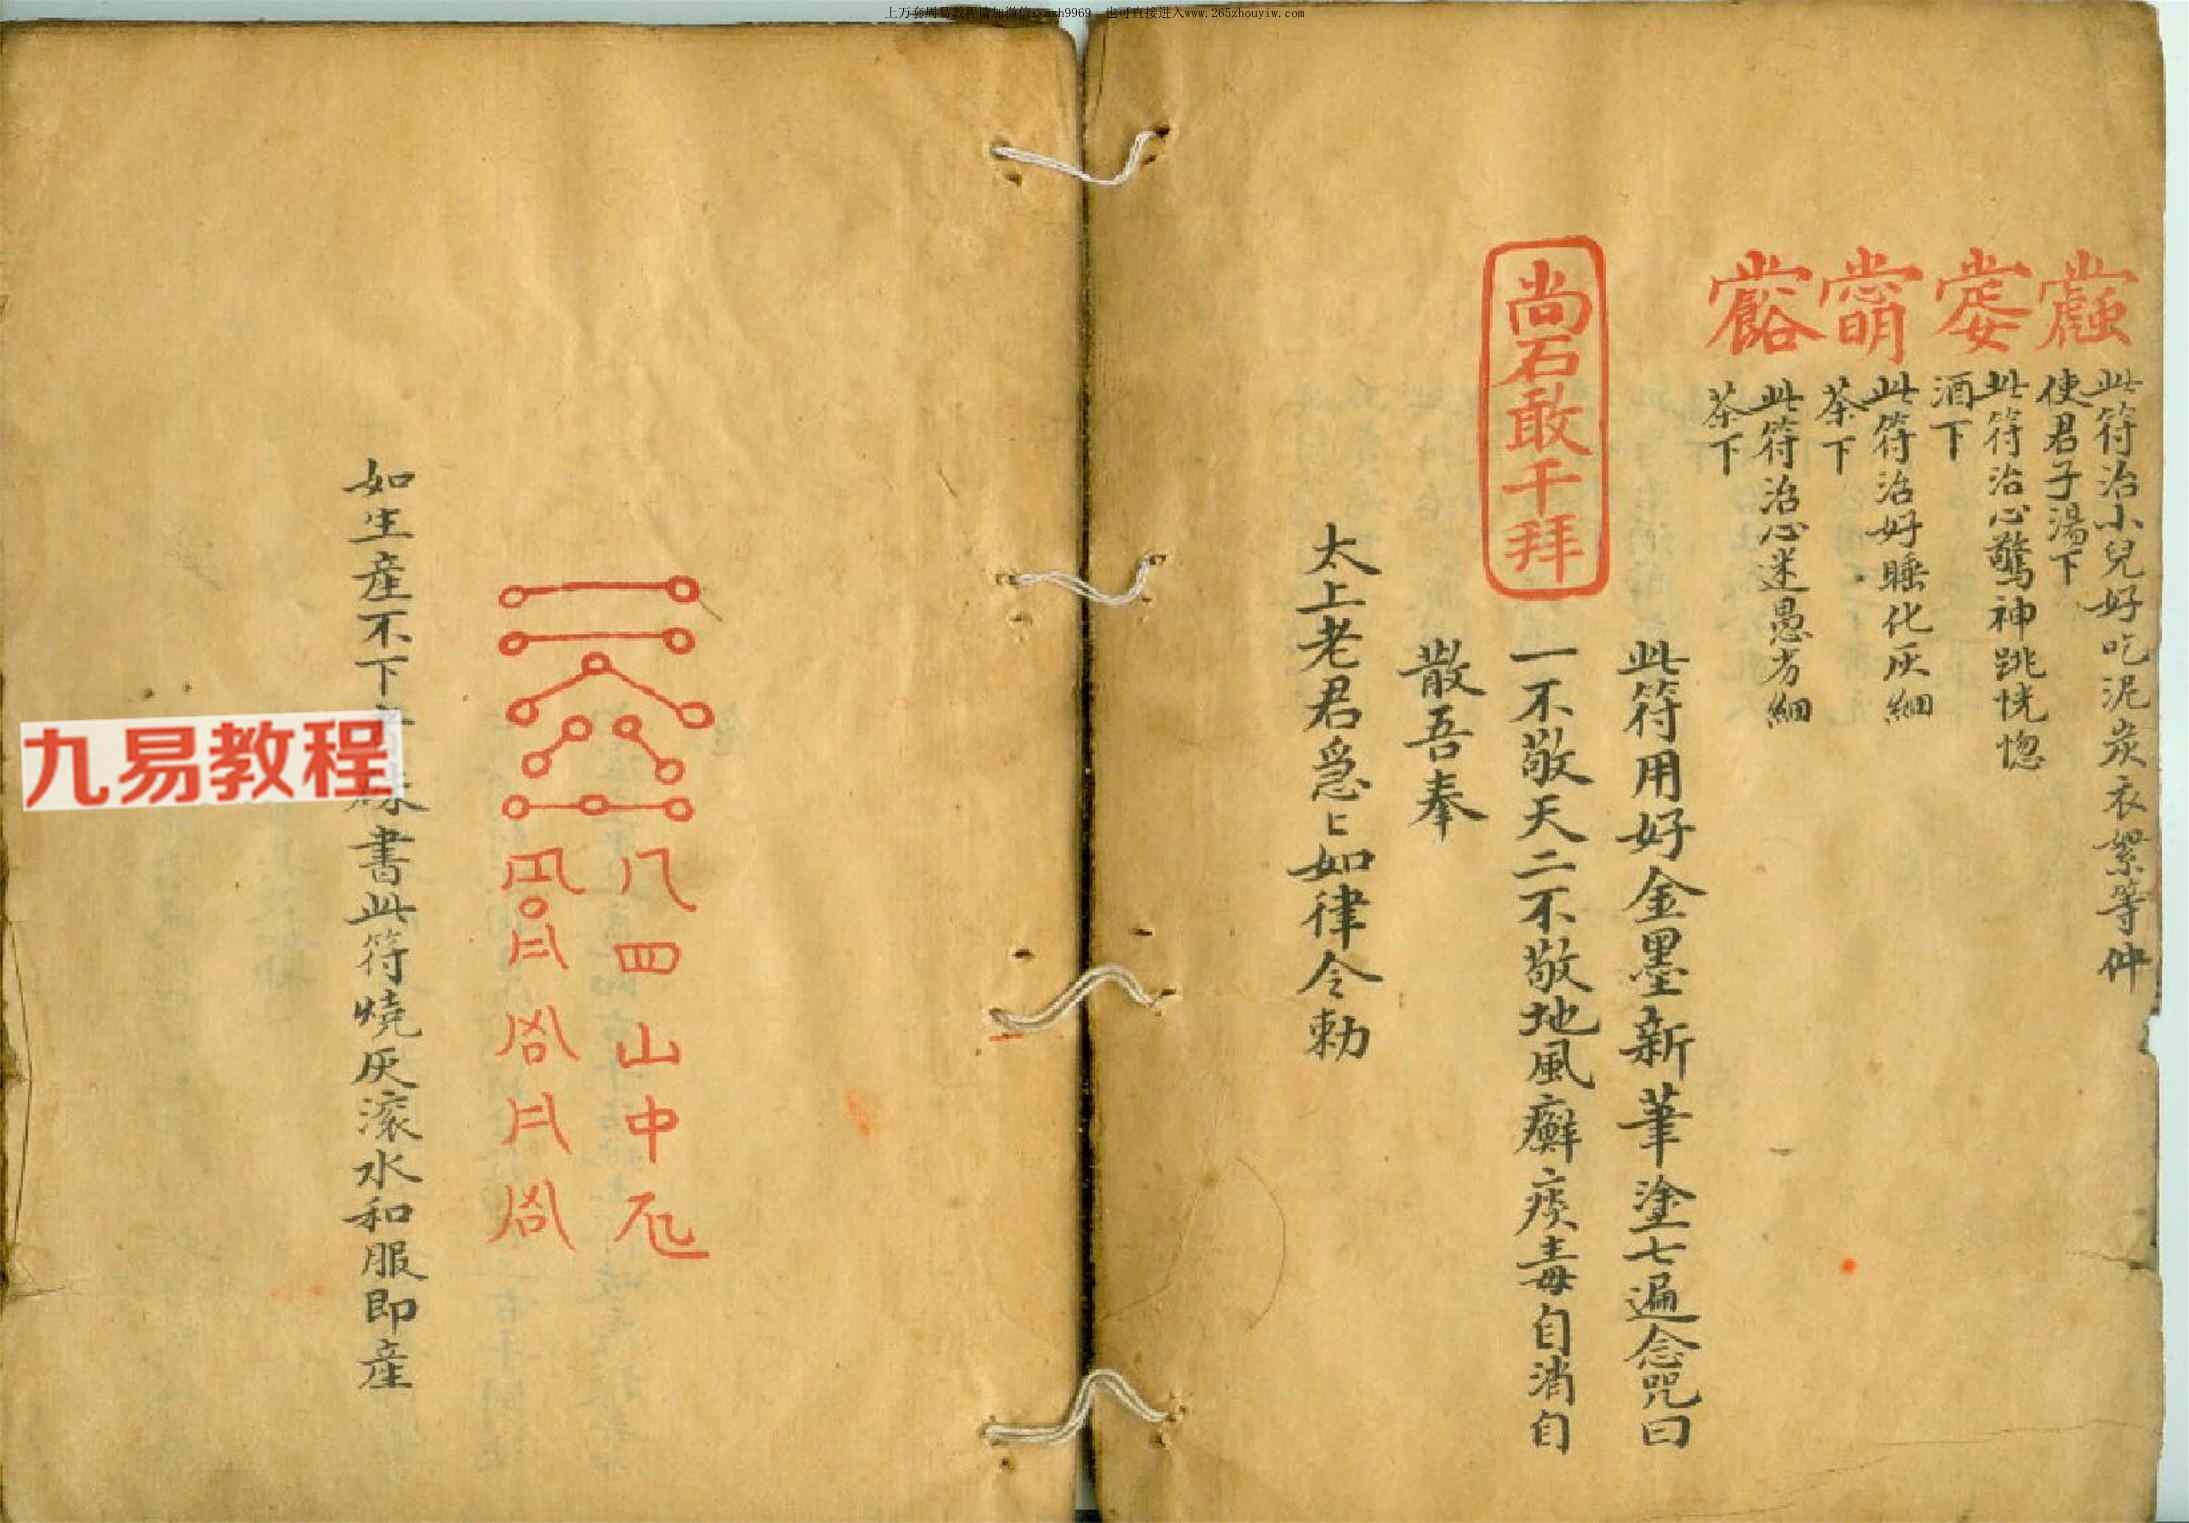 上万套周易教程请加微信 9969 也可直接进入www.265zhouyiw.com
此符治小兒好吃泥炭衣絮等件
使君子湯下
此符治心驚神跳恍惚
酒下
此符治好睡化灰細
茶下
此符治心迷愚方細
茶下
尚石敢千拜
此符用好金墨新筆塗七遍念咒曰
一不敬天二不敬地風癬痰毒自消自
散吾奉
太上老君急匕如律令勅
八四山中
如生産不下 書此符燒灰滾水和服即産
九易教程